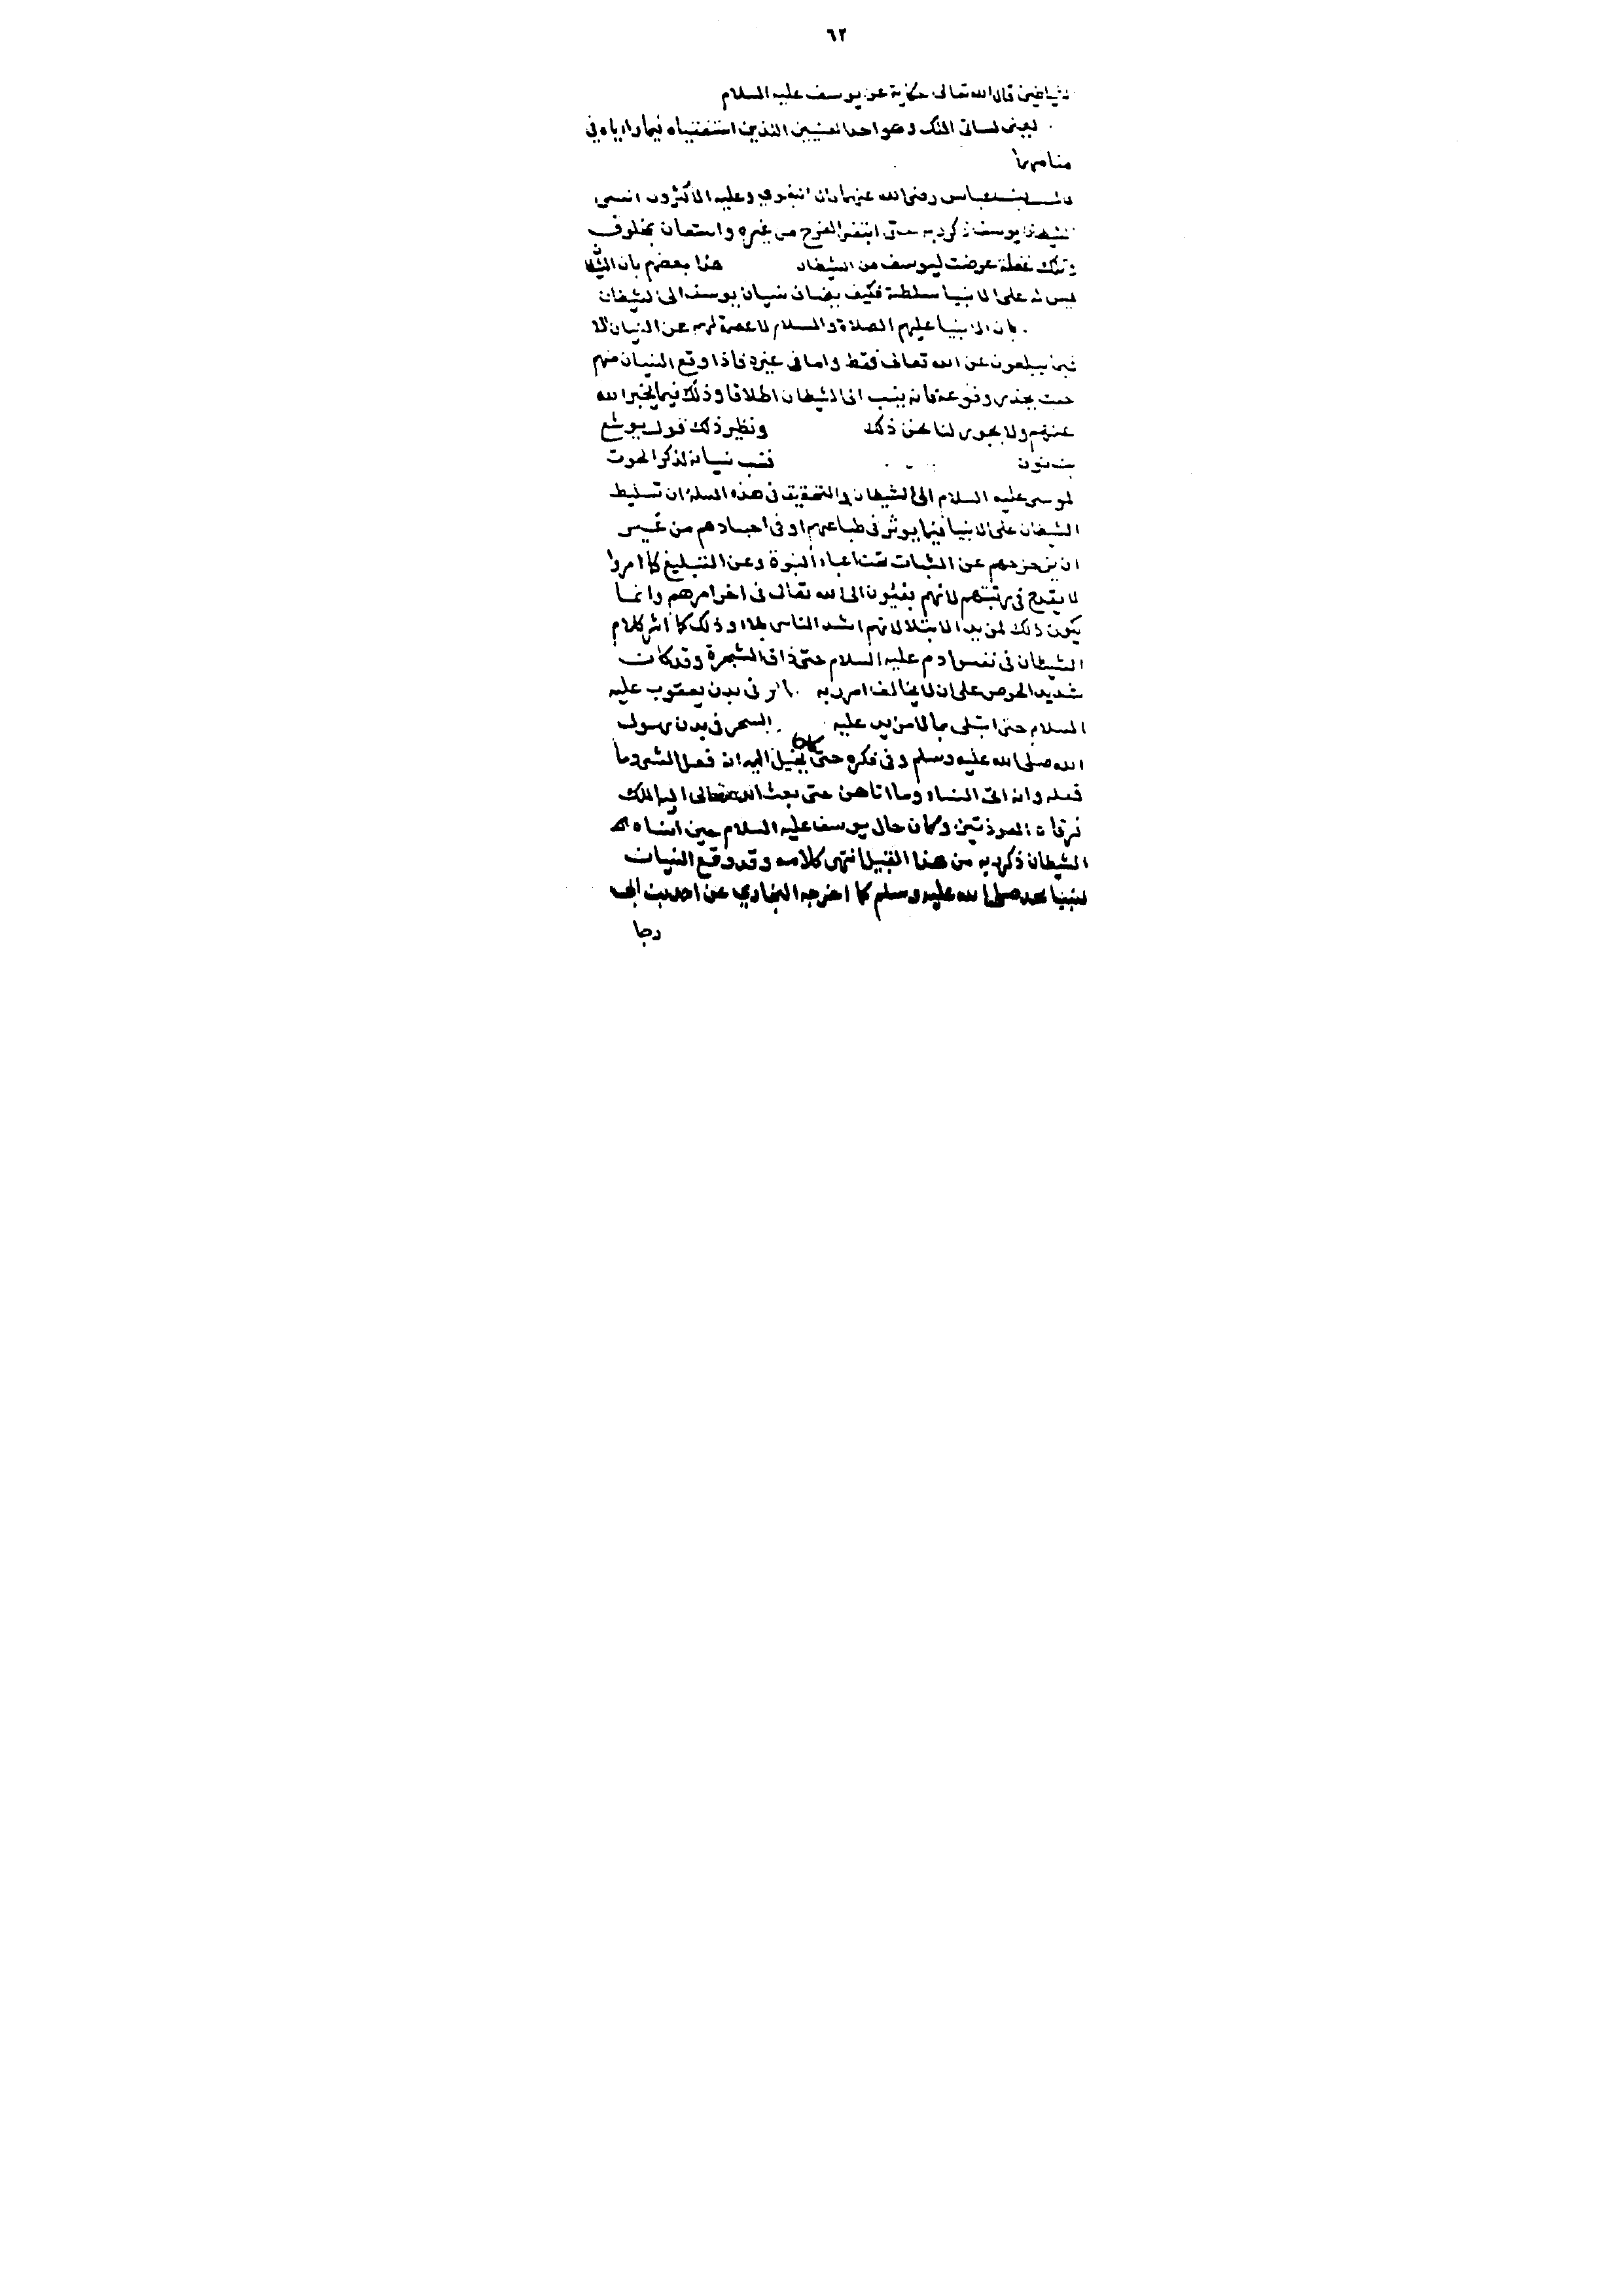 ٦٢
قال الله تعالى حكاية عن يوسف عليه السلام
يعني لساقي الملك وهو احد الفتيين الذين استفتياه فيما راياه في
منامهما
عباس رضي الله عنهما وان البغوي وعليه الاكثرون انسى
الشيطان يوسف ذكر ربه حتى ابتغى الفرج من غيره واستعان بمخلوف
وتلك غفلة عرضت ليوسف من الشيطان هذا بعضهم بان الشيطان
ليس له على الانبيا سلطنة فكيف يضاف نسيان يوسف الى الشيطان
بان الانبيا عليهم الصلاة والسلام لا عصمة لهم عن النسيان الا
فيما يبلغون عن الله تعالى فقط واما في غيره فاذا وقع النسيان منهم
حيث يجوز وقوعه فانه ينسب الى الشيطان اطلاقا وذلك فيما يخبر الله
عنهم ولا يجوز لنا نحن ذلك ونظير ذلك قول يوشع
بن نون فنسب نسيانه لذكر الحوت
لموسى عليه السلام الى الشيطان والتحقيق في هذه المسلة ان تسليط
الشيطان على الانبيا فيما يوثر في طباعهم او في اجسادهم من غير
ان يزحزحهم عن الثبات تحت اعباء النبوة وعن التبليغ كما امروا
لا يقدح في رتبتهم لانهم يفيئون الى الله تعالى في اخر امرهم وانما
يكون ذلك لمزيد الابتلا لانهم اشد الناس بلاا وذلك كما اثر كلام
الشيطان في نفس ادم عليه السلام حتى ذاق الشجرة وقد كان
شديد الحرص على ان لا يخالف امر ربه في بدن يعقوب عليه
السلام حتى ابتلى بما لا مزيد عليه السحر في بدن رسول
الله صلى الله عليه وسلم وفي فكره حتى كان يخيل اليه انه فعل الشي وما
فعله وانه اتى النساء وما اتاهن حتى بعث الله تعالى اليه الملك
فرقاه المعوذتين وكان حال يوسف عليه السلام حين انساه
الشيطان ذكر ربه من هذا القبيل انتهى كلامه وقد وقع النسيان
لنبينا محمد صلى الله عليه وسلم كما اخرجه البخاري عن احديث ابي
رجا